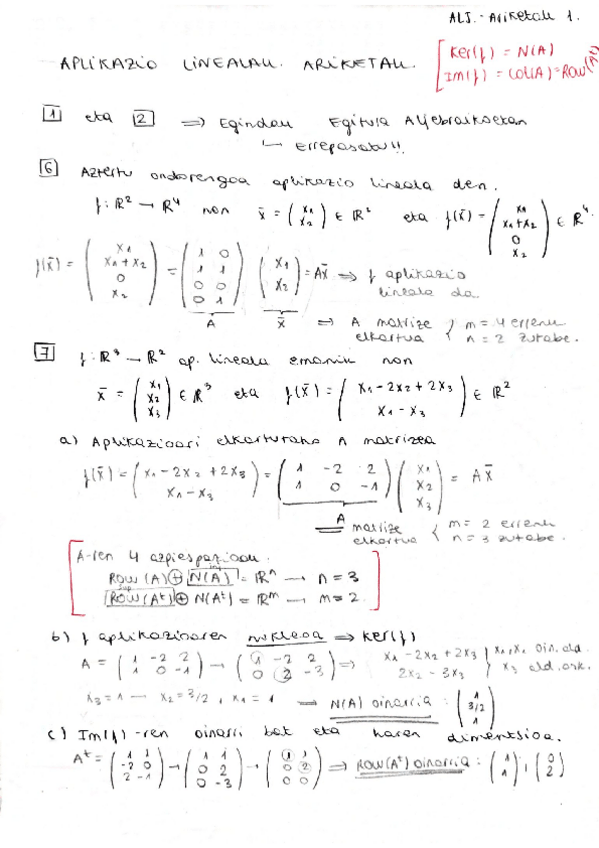 ALJ.-Ariketak 1.
APLIKAZIO LINEALAK. ARIKETAK.
[Ker(f) = N(A)
Im(f) = Col(A) = ROW(Aᵗ)
1 eta 2 ⇒ Egindak Egitura Aljebraikoetan
↳ Errepasatu!!
6 Aztertu ondorengoa aplikazio lineala den.
f: ℝ² → ℝ⁴ non x̄ = (x₁ x₂) ∈ ℝ² eta f(x̄) = (x₁ x₁+x₂ 0 x₂) ∈ ℝ⁴.
f(x̄) = (x₁ x₁+x₂ 0 x₂) = (1 0 1 1 0 0 0 1) (x₁ x₂) = Ax̄ ⇒ f aplikazio
lineala da
A x̄ ⇒ A matrize elkartua { m = 4 errenk n = 2 zutabe.
7 f: ℝ³ → ℝ² ap. lineala emanik non
x̄ = (x₁ x₂ x₃) ∈ ℝ³ eta f(x̄) = (x₁ - 2x₂ + 2x₃ x₁ - x₃) ∈ ℝ²
a) Aplikazioari elkarturako A matrizea
f(x̄) = (x₁ - 2x₂ + 2x₃ x₁ - x₃) = (1 -2 2 1 0 -1) (x₁ x₂ x₃) = Ax̄
A matrize elkartua { m = 2 errenk n = 3 zutabe.
A-ren 4 azpiespazioak.
ROW(A) ⊕ N(A) = ℝⁿ → n = 3
ROW(Aᵗ) ⊕ N(Aᵗ) = ℝᵐ → m = 2.
b) f aplikazioaren nukleoa ⇒ Ker(f)
A = (1 -2 2 1 0 -1) → (1 -2 2 0 2 -3) ⇒ x₁ - 2x₂ + 2x₃ 2x₂ - 3x₃ } x₁, x₂ oin. ald. x₃ ald. ask.
x₃ = 1 → x₂ = 3/2, x₁ = 1 → N(A) oinarria : (1 3/2 1)
c) Im(f)-ren oinarri bat eta haren dimentsioa.
Aᵗ = (1 1 -2 0 2 -1) → (1 1 0 2 0 -3) → (1 1 0 2 0 0) ⇒ ROW(Aᵗ) oinarria : (1 1), (0 2)